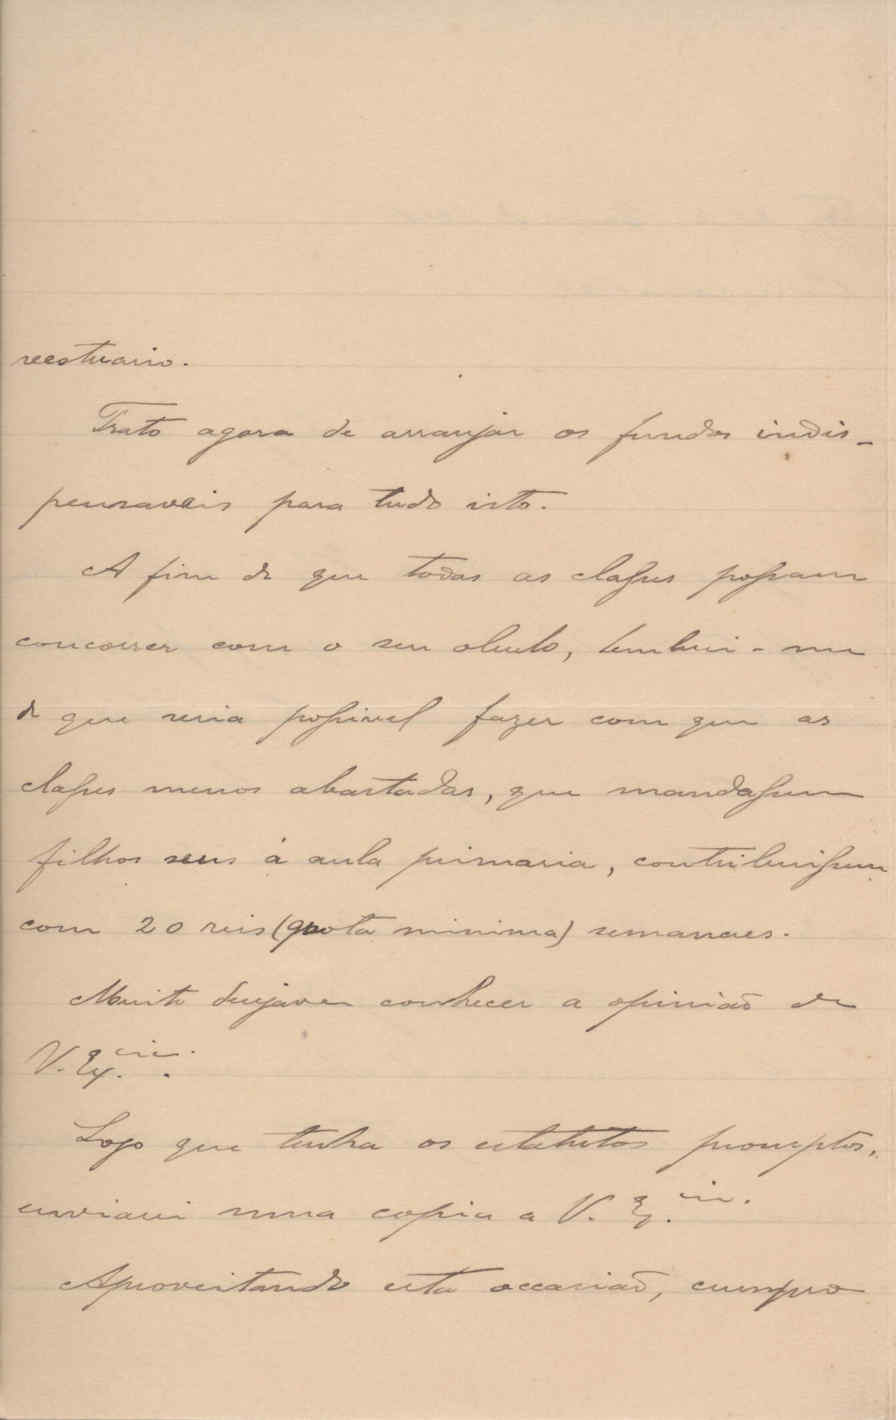 vestuario.
Trato agora de arranjar os fundos indis-
pensaveis para tudo isto.
A fim de que todas as classes possam
concorrer com o seu obulo, lembrei-me
de que seria possivel fazer com que as
classes menos abastadas, que mandassem
filhos seus á aula primaria, contribuissem
com 20 reis (quota minima) semanaes.
Muito desejava conhecer a opinião de
V. Ex.cia.
Logo que tenha os estatutos promptos,
enviarei uma copia a V. Ex.cia.
Aproveitando esta occasião, cumpro